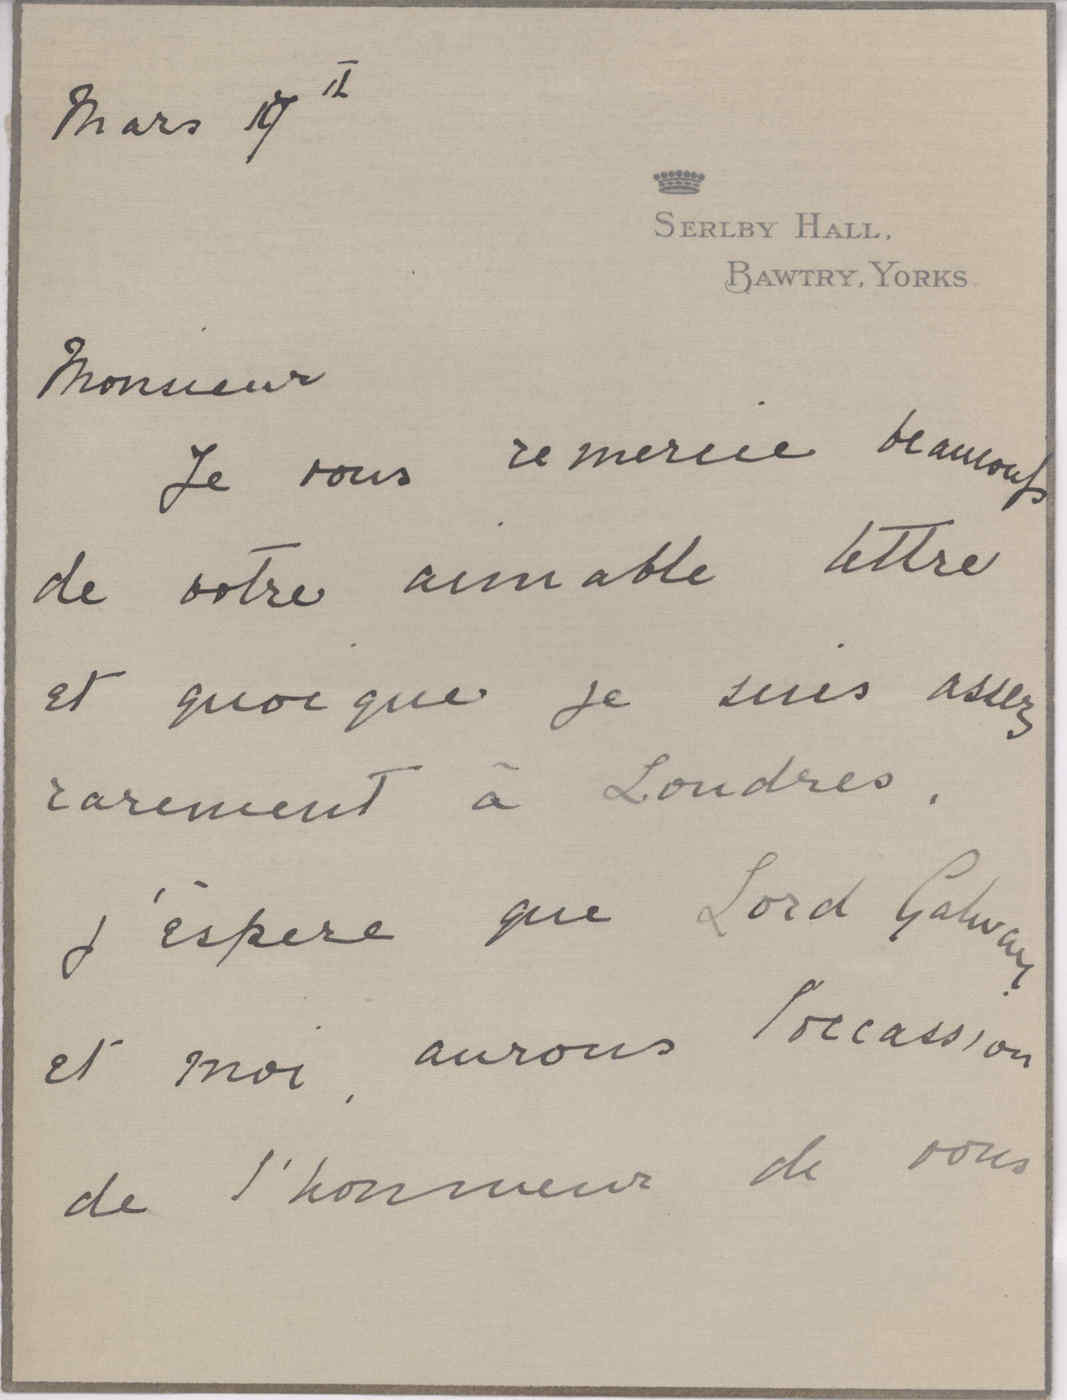 Mars 17
SERLBY HALL,
BAWTRY, YORKS.
Monsieur
Je vous remercie beaucoup
de votre aimable lettre
et quoique je suis assez
rarement à Londres,
j'éspere que Lord Galway
et moi, aurons l'occassion
de l'honneur de vous